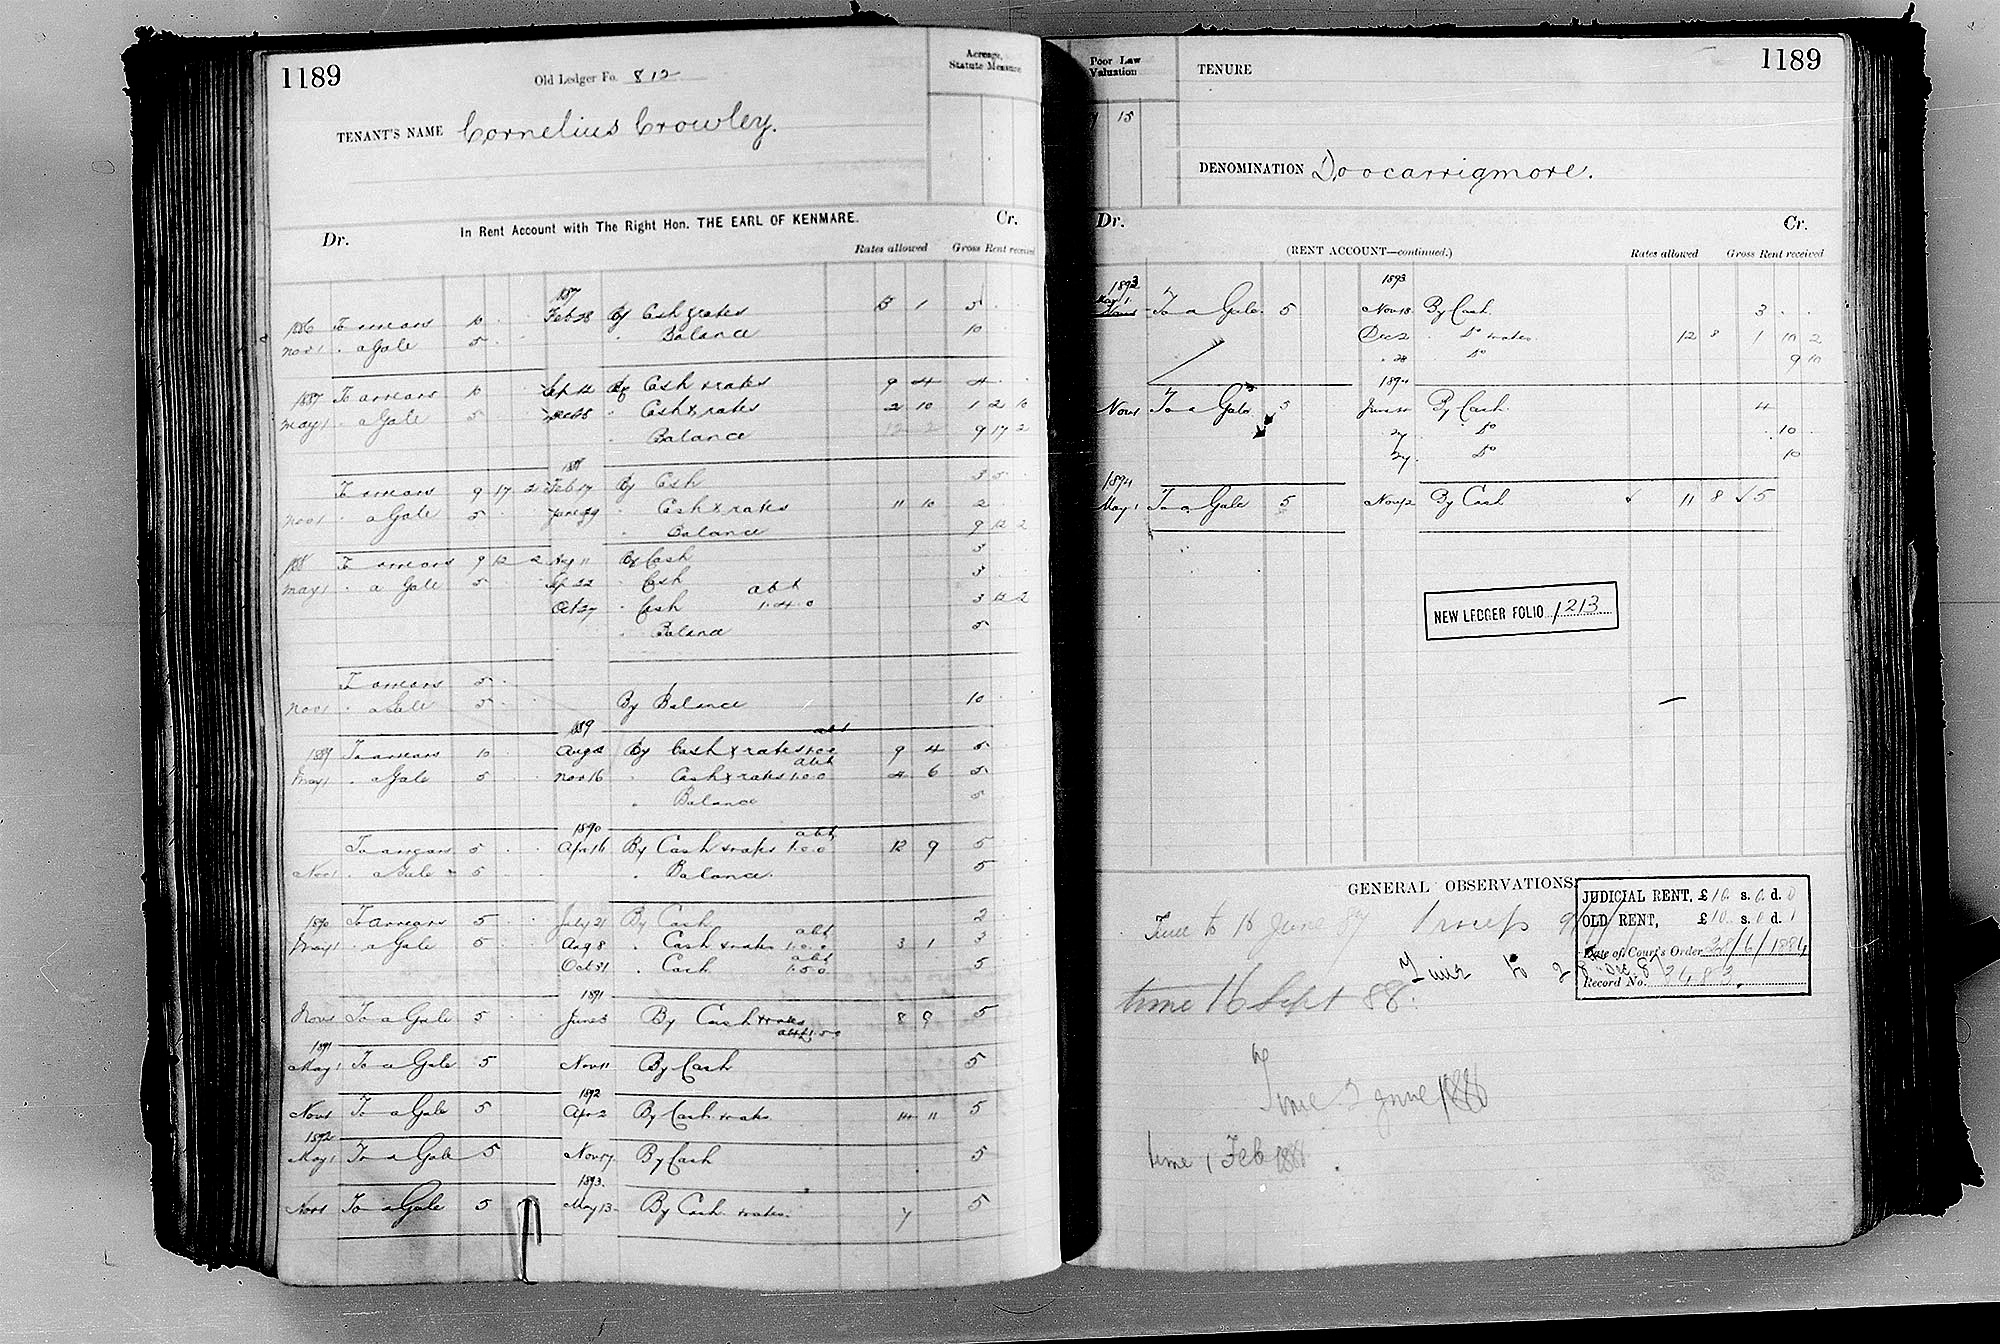 1189
Old Ledger Fo. 812
Acreage, Statute Measure
TENANT'S NAME Cornelius Crowley.
In Rent Account with The Right Hon. THE EARL OF KENMARE.
Dr. Cr.
Rates allowed Gross Rent received
1887
1886 To arrears 10 Feb 28 By Cash & rates 3 1 5
Nov 1 " a Gale 5 " Balance 10
1887 To arrears 10 Sep 12 By Cash & rates 9 4 4
May 1 " a Gale 5 Dec 5 " Cash & rates 2 10 1 2 10
" Balance 12 2 9 17 2
1888
To arrears 9 17 2 Feb 17 By Cash 3 5
Nov 1 " a Gale 5 June 29 " Cash & rates 11 10 2
" Balance 9 12 2
1888 To arrears 9 12 2 Aug 11 By Cash 3
May 1 " a Gale 5 Sep 22 " Cash 3
Oct 27 " Cash abt 1.4.0 3 12 2
" Balance 5
To arrears 5
Nov 1 " a Gale 5 By Balance 10
1889
1889 To arrears 10 Aug By Cash & rates abt 1.0.0 9 4 5
May 1 " a Gale 5 Nov 16 " Cash & rates abt 1.0.0 4 6 5
" Balance 5
1890
To arrears 5 Apr 16 By Cash & rates abt 1.0.0 12 9 5
Nov 1 " a Gale 5 " Balance 5
1890 To arrears 5 July 21 By Cash 2
May 1 " a Gale 5 Aug 8 " Cash & rates abt 1.0.0 3 1 3
Oct 31 " Cash abt 1.5.0 5
1891
Nov 1 To a Gale 5 June 3 By Cash & rates 8 9 5
1891
May 1 To a Gale 5 Nov 11 By Cash 5
1892
Nov 1 To a Gale 5 Apr 2 By Cash & rates 14 11 5
1892
May 1 To a Gale 5 Nov 17 By Cash 5
1893
Nov 1 To a Gale 5 May 13 By Cash & rates 7 5
1189
Poor Law Valuation
TENURE
15
DENOMINATION Doocarrigmore.
Dr. Cr.
(RENT ACCOUNT—continued.)
Rates allowed Gross Rent received
1893 1893
May 1 To a Gale 5 Nov 18 By Cash 3
Dec 2 " Do rates 12 8 1 10 2
" 28 Do 9 10
1894
Nov 1 To a Gale 5 June By Cash 4
27 " Do 10
27 Do 10
1894
May 1 To a Gale 5 Nov 12 By Cash 11 8 5
NEW LEDGER FOLIO 1213
GENERAL OBSERVATIONS.
JUDICIAL RENT, £10 s. 0 d. 0
OLD RENT, £10 s. 0 d. 1
Date of Court's Order 28/6/1884
Record No. 2483.
Time to 16 June 87
Time to 28 Dec. 87
time 16 Sept 88.
Time 2 June 1888
time 1 Feb 1888